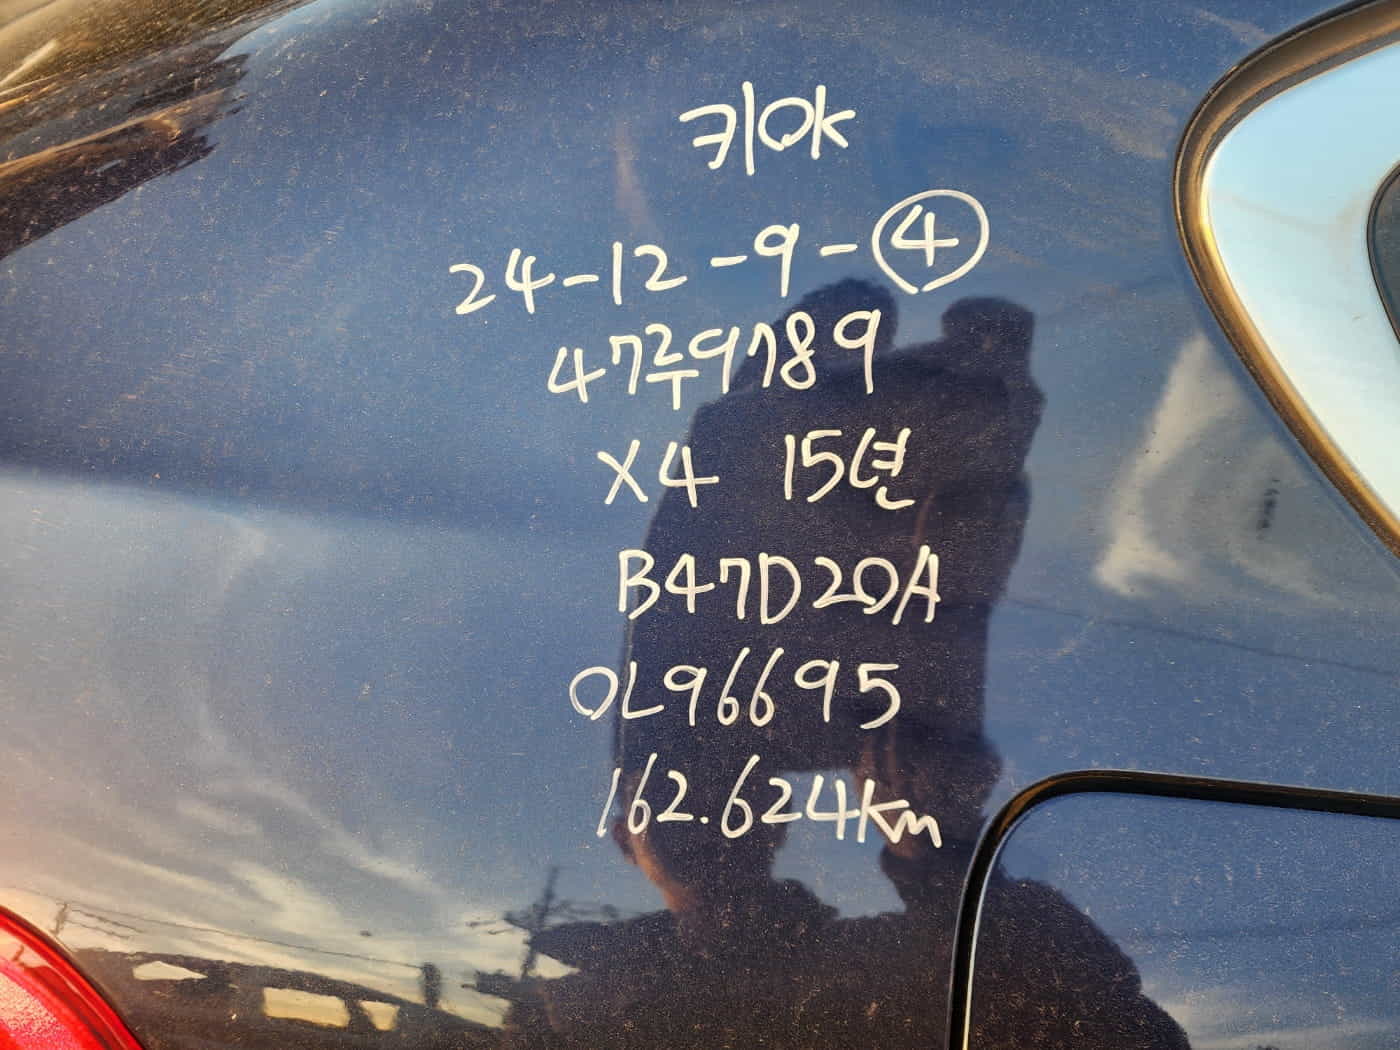 키OK
24-12-9-④
47루9789
X4 15년
B47D20A
0L96695
162.624Km